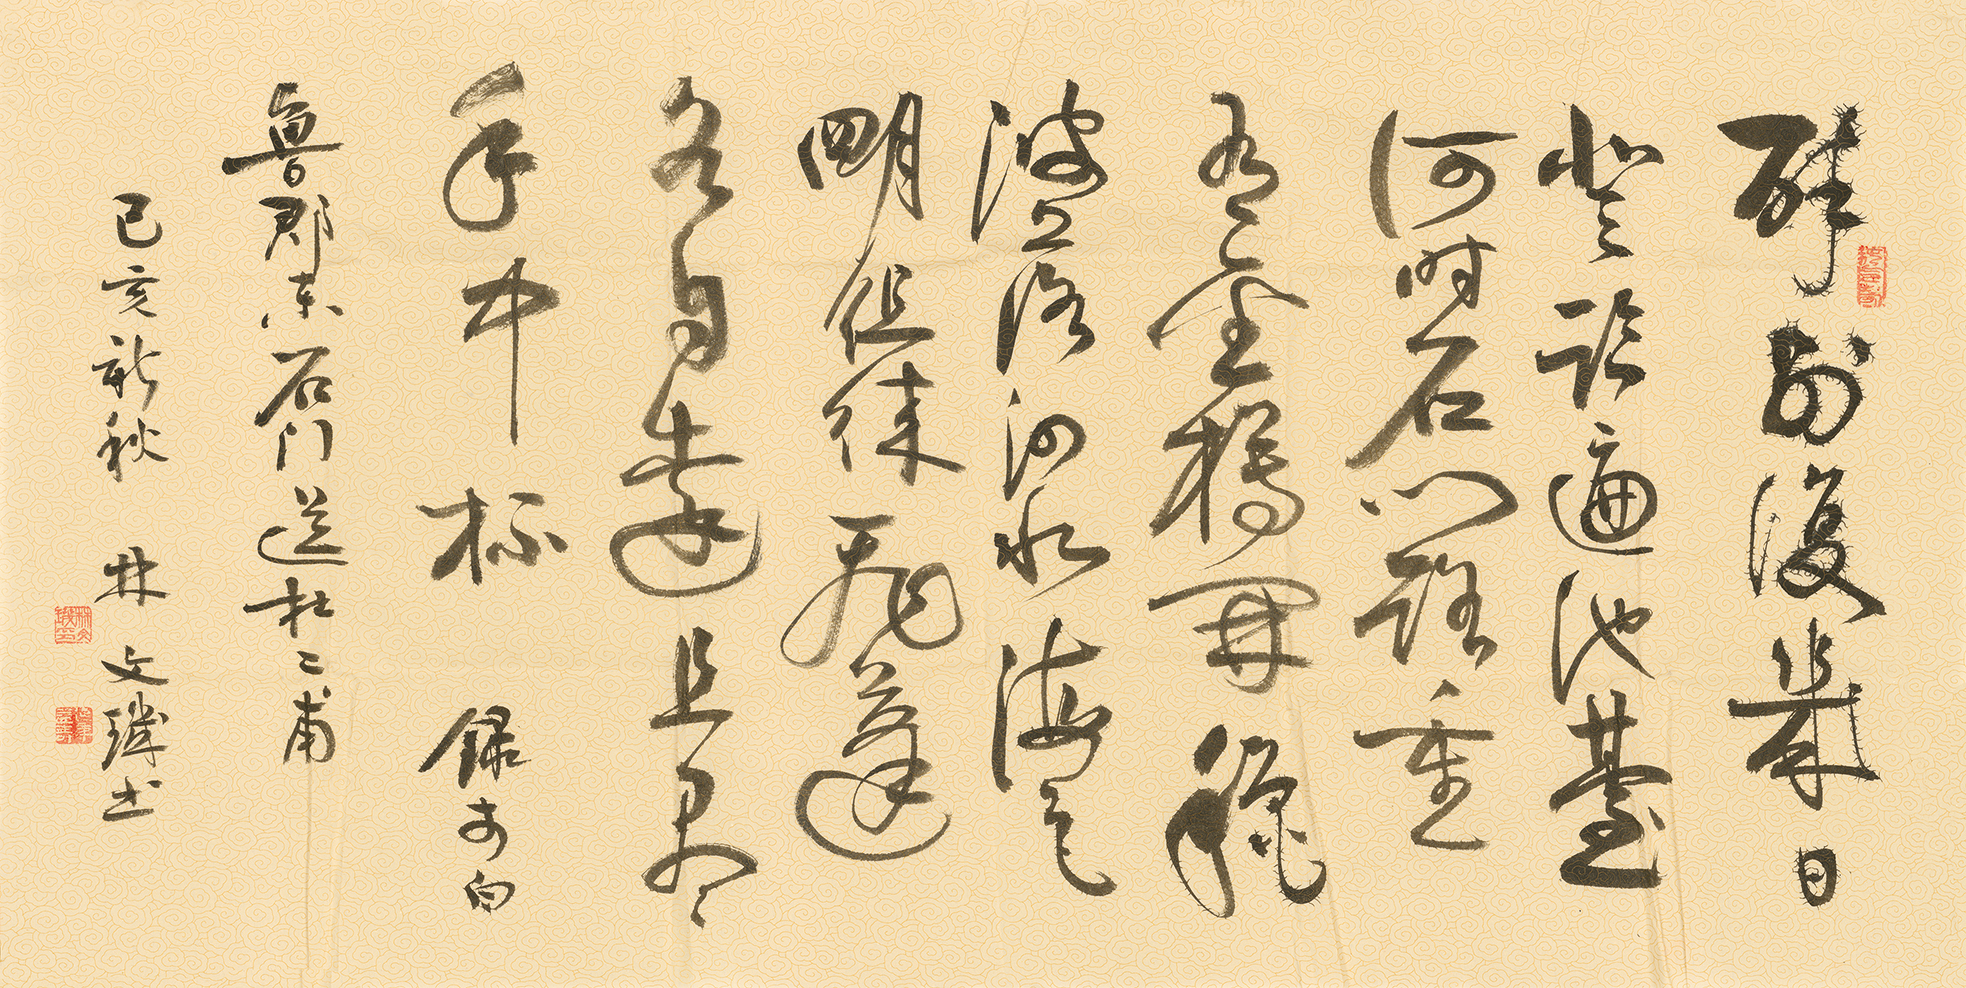 醉别復幾日
登臨遍池臺
何时石门路重
有金樽開穐
波落泗水海色
明徂徕飛蓬
各自遠且盡
手中杯 錄李白
魯郡东石门送杜二甫
己亥新秋 林文书